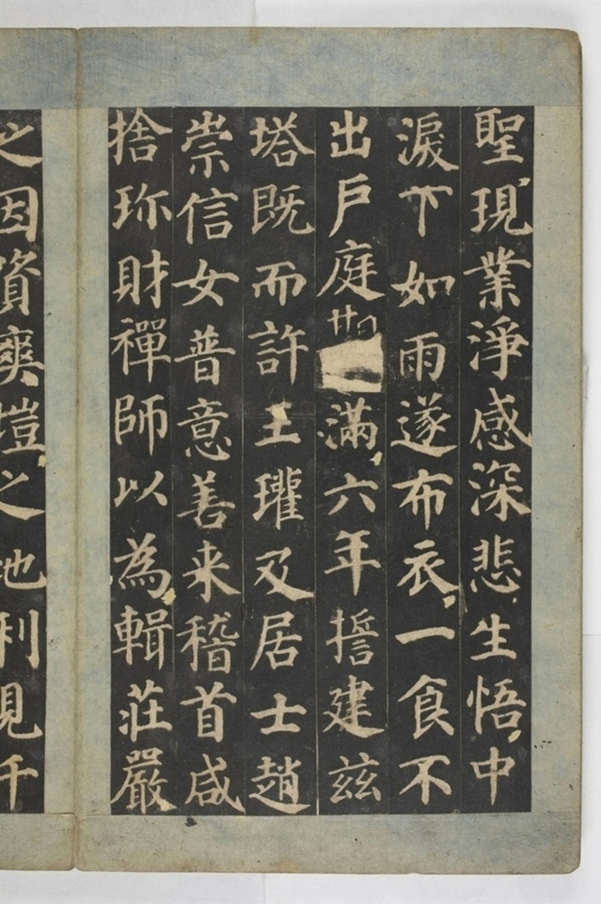 聖現業淨感深悲生悟中
淚下如雨遂布衣一食不
出戶庭滿六年誓建茲
塔既而許王瓘及居士趙
崇信女普意善来稽首咸
捨珎財禪師以為輯莊嚴
之因資爽塏之地利見千